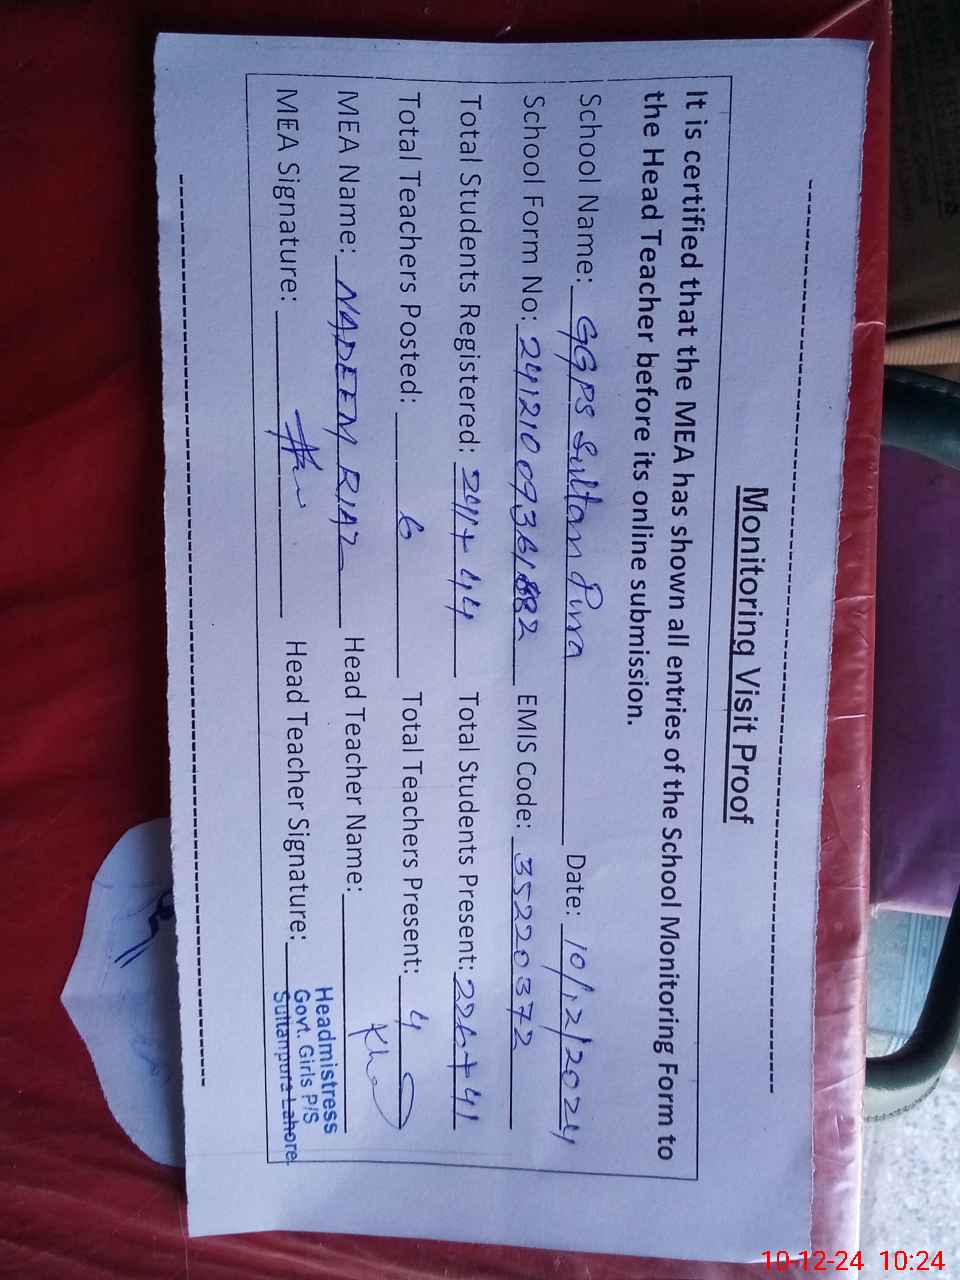 Monitoring Visit Proof
It is certified that the MEA has shown all entries of the School Monitoring Form to
the Head Teacher before its online submission.
School Name: GGPS Sultan Pura Date: 10/12/2024
School Form No: EMIS Code: 35220372
Total Students Registered: Total Students Present: 226+41
Total Teachers Posted: 6 Total Teachers Present: 4
MEA Name: NADEEM RIAZ Head Teacher Name:
MEA Signature: Head Teacher Signature:
Headmistress
Govt. Girls P/S
Sultanpura Lahore.
10-12-24 10:24